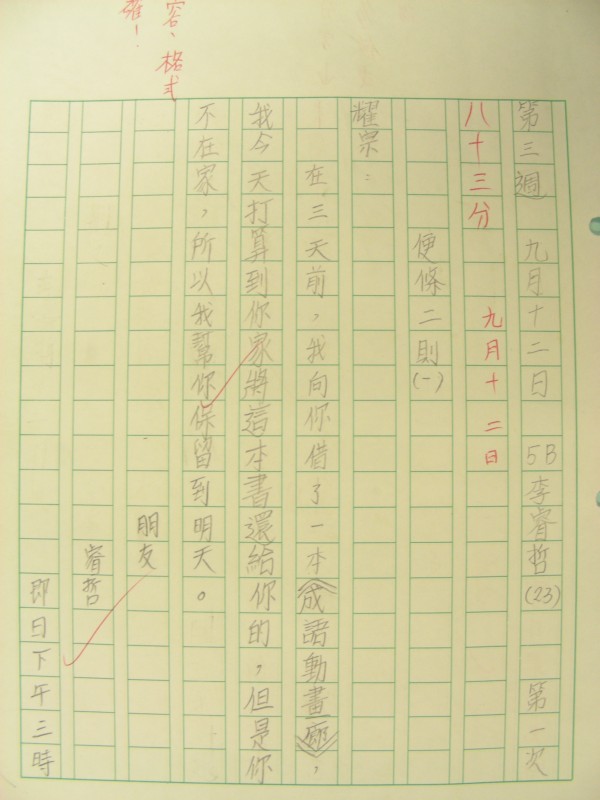 第三週 九月十二日 5B李睿哲(23) 第一次
八十三分 九月十二日
便條二則(一)
耀宗：
在三天前，我向你借了一本《成語動畫廊》，
我今天打算到你家將這本書還給你的，但是你
不在家，所以我幫你保留到明天。
朋友
睿哲
即日下午三時
容、格式
確！